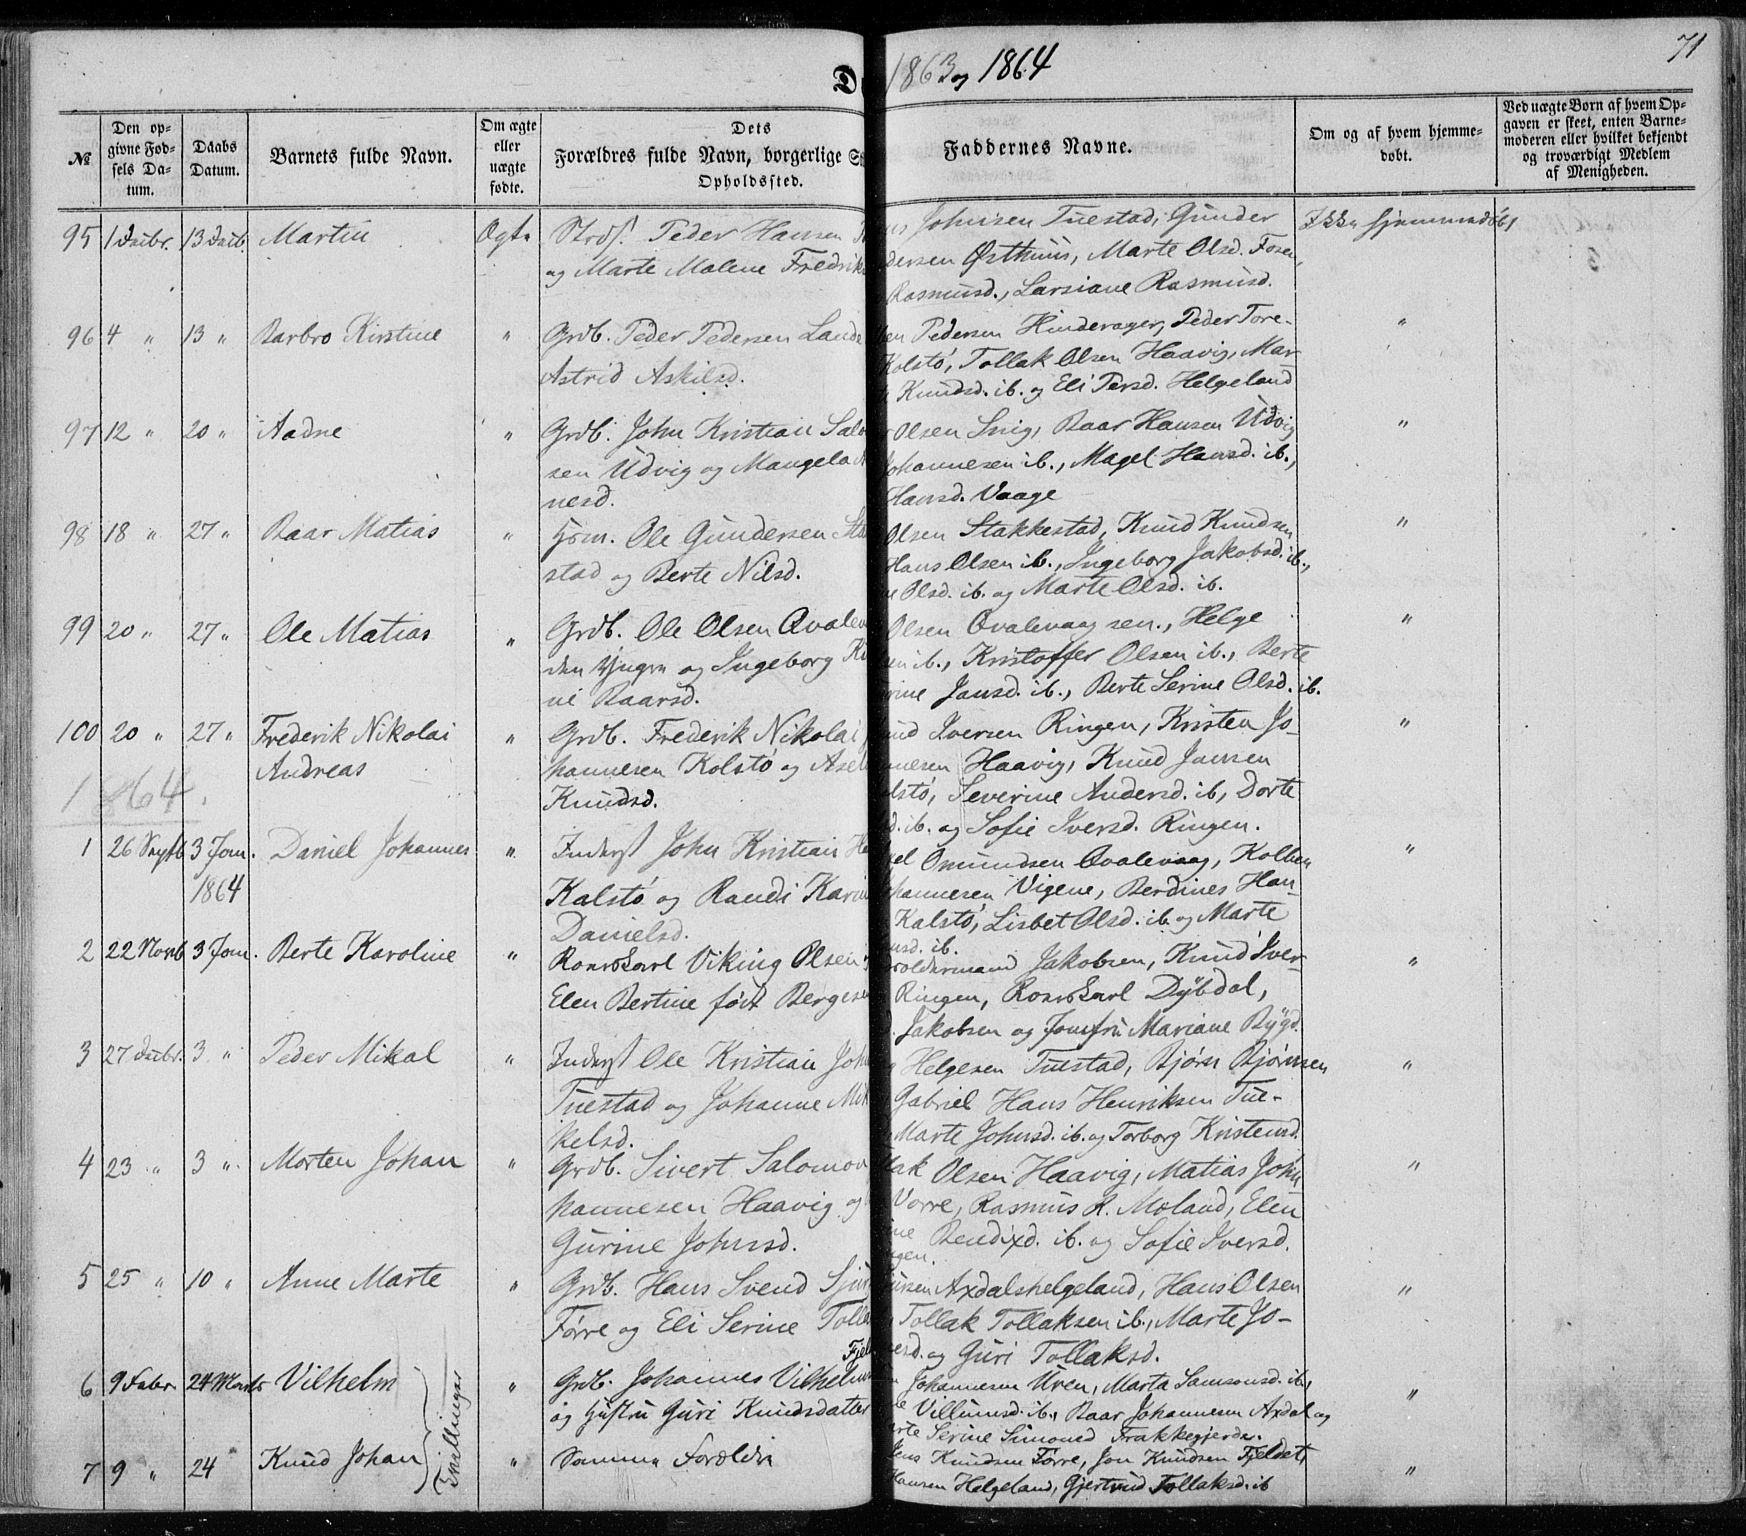 71
1863 og 1864
№
Den op-
givne Fød-
sels Da-
tum.
Daabs
Datum.
Barnets fulde Navn.
Om ægte
eller
uægte
fødte.
Dets
Forældres fulde Navn, borgerlige S
Opholdssted.
Faddernes Navne.
Om og af hvem hjemme-
døbt.
Ved uægte Børn af hvem Op-
gaven er skeet, enten Barne-
moderen eller hvilket bekjendt
og troværdigt Medlem
af Menigheden.
95 1 Decbr. 13 Decb. Martin Ægte Strds. Peder Hansen
og Marte Malene Fredrik
Johnsen Tuestad, Gunder
dersen Østhuus, Marte Olsd. Fosen,
Rasmusd., Larsiane Rasmusd.
Ikke hjemmedøbt
96 4 " 13 " Barbro Kirstine " Grdb. Peder Pedersen Lands
Astrid Askilsd.
en Pedersen Hinderager, Peder Tore-
Kolstö, Tollak Olsen Haavig, Mar-
Knudsd. ib. og Eli Persd. Helgeland
"
97 12 " 20 " Aadne " Grdb. John Kristian Salo
sen Udvig og Mangela
nesd.
Olsen Snig, Baar Hansen Udvig
Johannesen ib., Magel Hansd. ib.,
Hansd. Vaage
"
98 18 " 27 " Baar Matias " Hsm. Ole Gundersen Sta
stad og Berte Nilsd.
Olsen Stakkestad, Knud Knudsen
Hans Olsen ib., Ingeborg Jakobsd. ib.,
Olsd. ib. og Marte Olsd. ib.
"
99 20 " 27 " Ole Matias " Grdb. Ole Olsen Qvalev
den Yngre og Ingeborg K
ne Baarsd.
Olsen Qvalevaag sen., Helge
sen ib., Kristoffer Olsen ib., Berte
rine Jansd. ib., Berte Serine Olsd. ib.
"
100 20 " 27 " Frederik Nikolai
Andreas
" Grdb. Frederik Nikolai
hannesen Kolstö og Asel
Knudsd.
ud Iversen Ringen, Kristen Jo-
nnesen Haavig, Knud Jansen
lstö, Severine Andersd. ib., Dorte
d. ib. og Sofie Iversd. Ringen.
"
1864.
1 26 Septb. 3 Jan.
1864
Daniel Johannes " Inderst John Kristian H
Kalstö og Randi Karin
Danielsd.
el Omundsen Qvalevaag, Kolben
hannesen Vigene, Berdines Han-
Kalstö, Lisbet Olsd. ib. og Marte
nsd. ib.
"
2 22 Novb. 3 Jan. Berte Karoline " Viking Olsen
Elen Bertine född Bergesen
oldermand Jakobsen, Knud Iver-
Ringen, Dÿbdal,
Jakobsen og Jomfru Mariane Bygd.
"
3 27 Decbr. 3 " Peder Mikal " Inderst Ole Kristian Joh
Tuestad og Johanne Mik
kelsd.
Helgesen Tuestad, Bjørn Bjørnsen
Gabriel Hans Henriksen Tue-
Marte Johnsd. ib. og Torborg Kristensd.
"
4 23 " 3 " Morten Johan " Grdb. Sivert Salomon
hannesen Haavig og
Gurine Johnsd.
lak Olsen Haavig, Matias John
Vorre, Rasmus R. Moland, Elen
ine Bendixd. ib. og Sofie Iversd.
ngen.
"
5 25 " 10 " Anne Marte " Grdb. Hans Svend Sjur
Førre og Eli Serine Tolla
ursen Axdalshelgeland, Hans Olsen
Tollak Tollaksen ib., Marte Jo-
esd. og Guri Tollaksd.
"
6 9 Febr. 24 Marts Vilhelm Tvillinger " Grdb. Johannes Vilhelm Fjel
og Hustru Guri Knudsdatter
Johannesen Uren, Marta Samsonsd. ib.,
Villumsd. ib., Baar Johannesen Axdal og
rte Serine Simonsd Frakkegjerde.
"
7 9 " 24 " Knud Johan " Samme Forældre
Jens Knudsen Førre, Jon Knudsen Fjeldet,
Hansen Helgeland, Gjertrud Tollaksd. ib
"